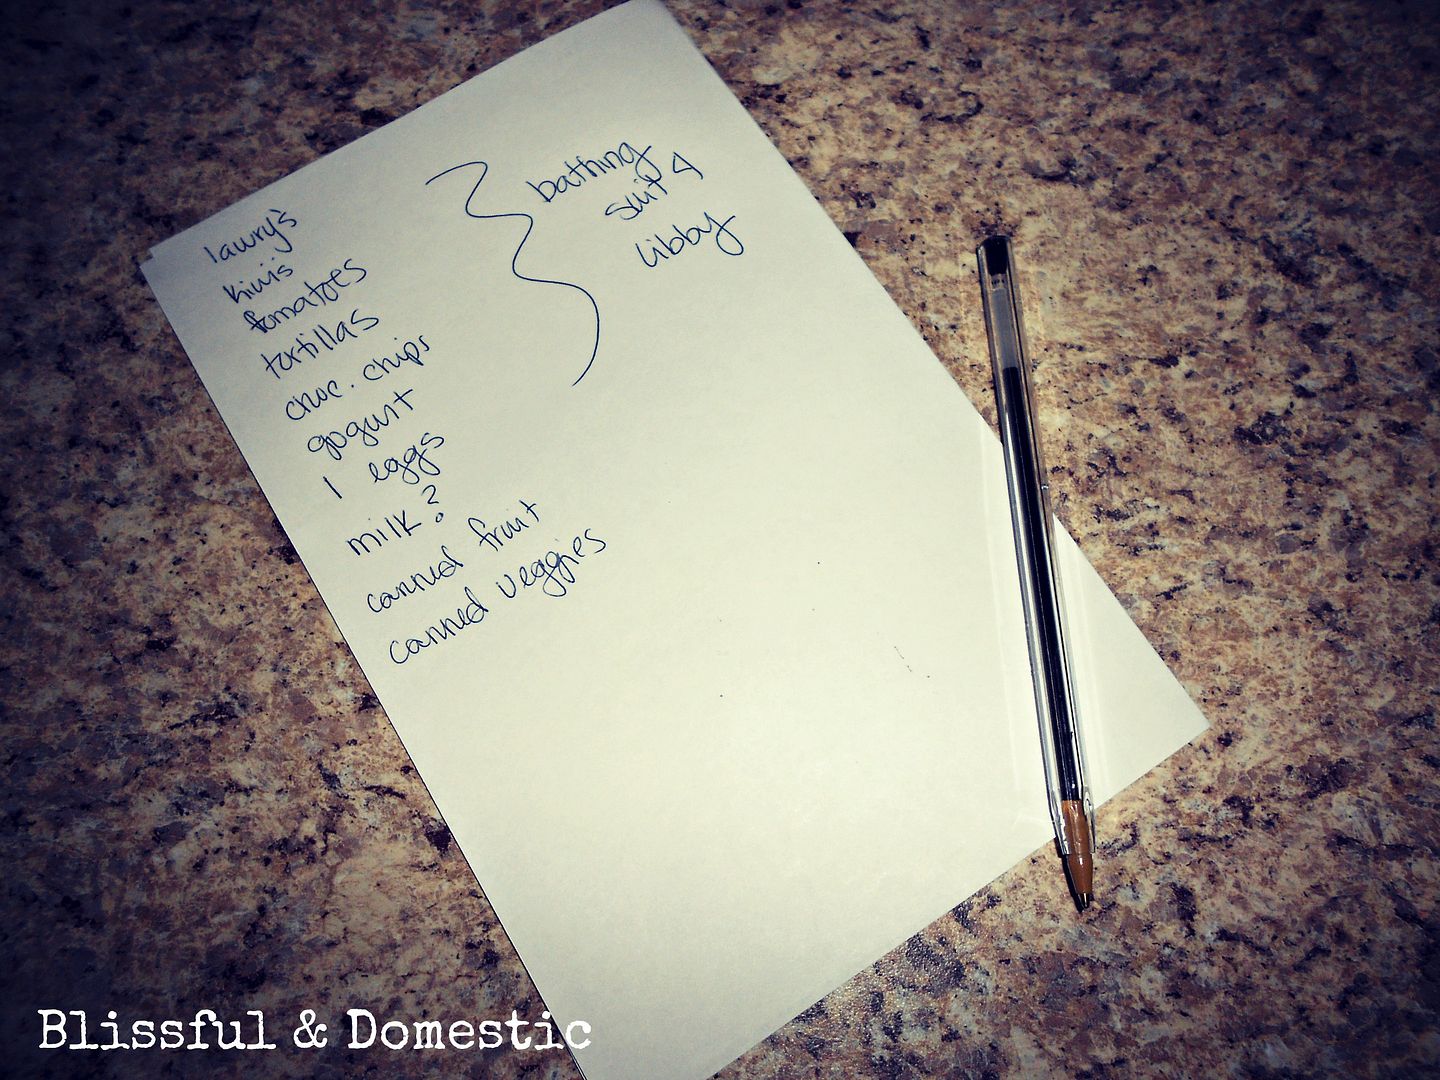 lawry's
kiwis
tomatoes
tortillas
choc. chips
gogurt
1 eggs
milk?
canned fruit
canned veggies
bathing
suit 4
libby
Blissful & Domestic